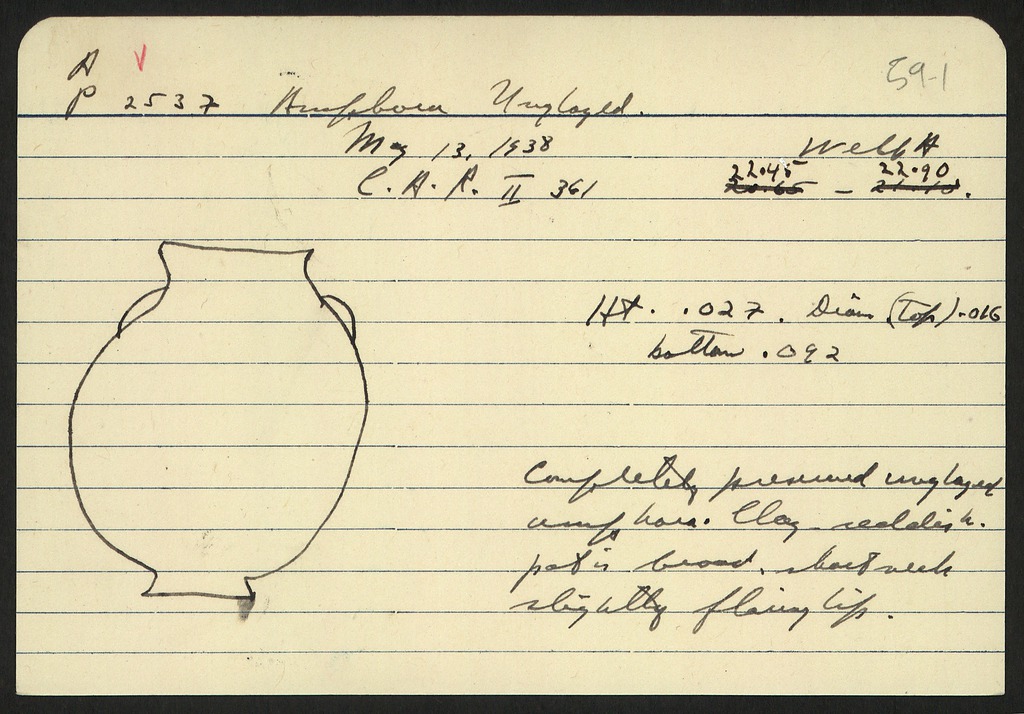 A
59-1
P 2537 Amphora Unglazed.
May 13, 1938
Well A
C.A.P. II 361
22.45 22.90
–
Ht. .027. Diam (Top) .016
bottom .092
Completely preserved unglazed
amphora. Clay reddish.
pot is broad, short neck
slightly flaring lip.